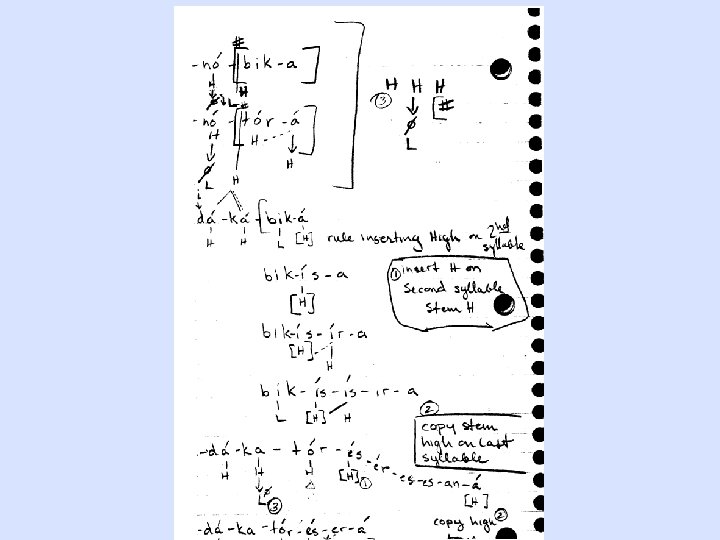 #
-nó-[bik-a]
H
H
L
#
H H H
③
[#
-nó [tór-á]
H
H
L
H
L
H
H
dá-ká-[bik-á
H H L [H]
rule inserting High on 2nd
syllable
bik-ís-a
[H]
① insert H on
second syllable
Stem H
bik-ís-ír-a
[H]
H
bik-ís-ís-ir-a
L [H] H
②
copy stem
high on last
syllable
-dá-ka-tór-és-ér-es-es-an-á
H H H [H] ①
L ③
[H]
copy high ②
-dá-ka-tór-és-er-á